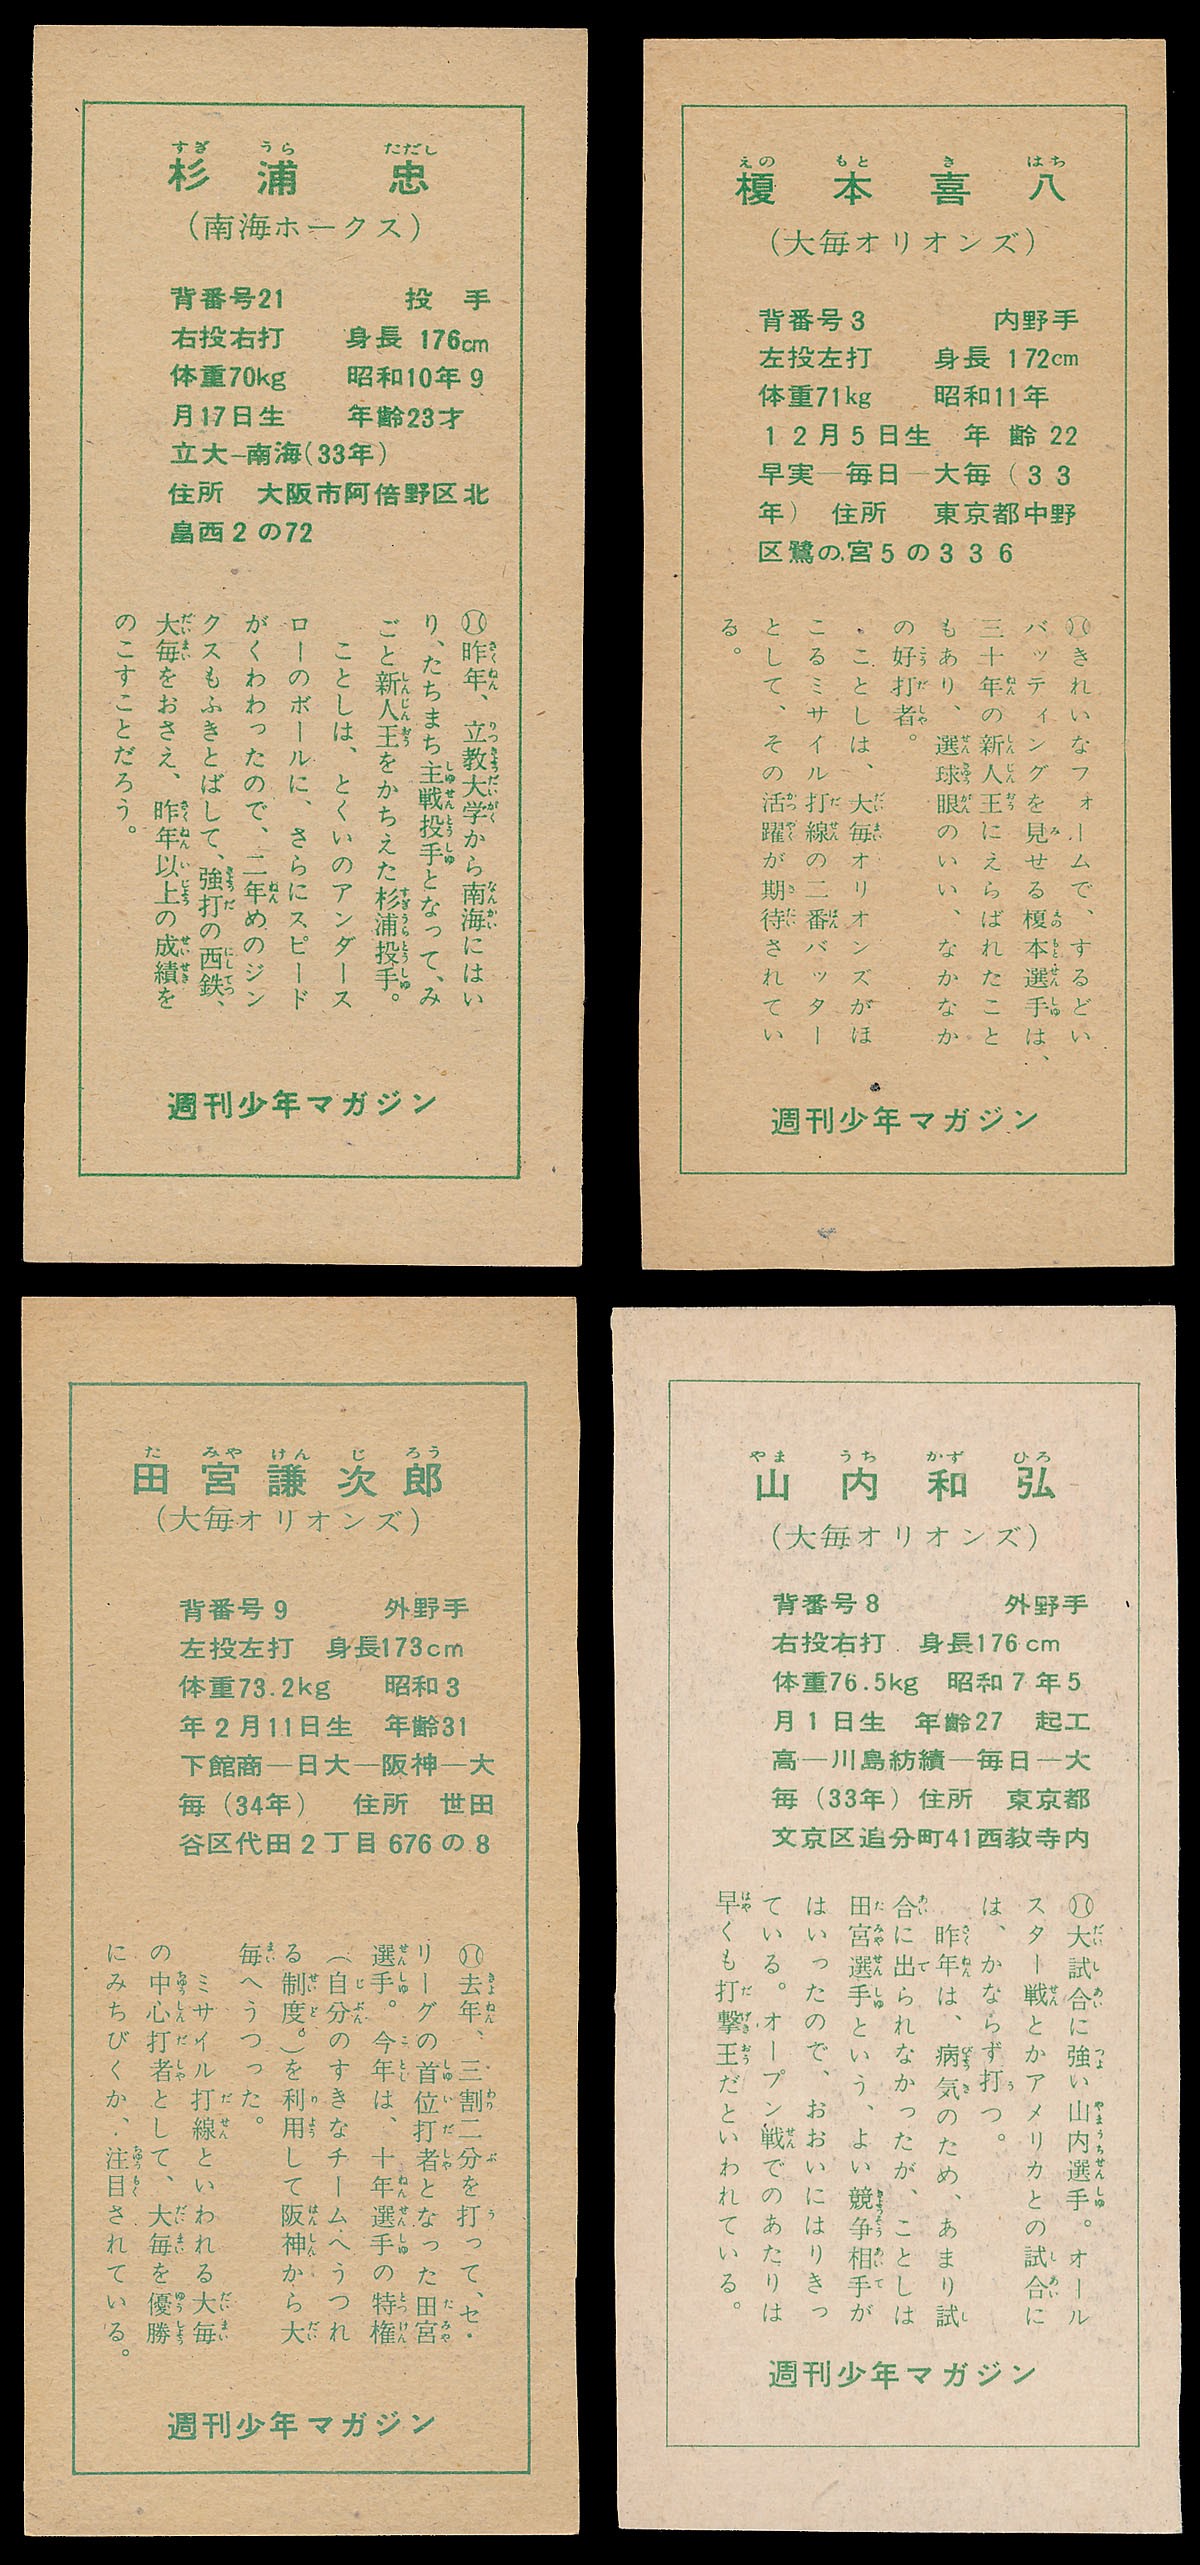 杉浦忠
(南海ホークス)
背番号21 投手
右投右打 身長 176cm
体重70kg 昭和10年9
月17日生 年齢23才
立大―南海(33年)
住所 大阪市阿倍野区北
畠西2の72
昨年、立教大学から南海にはい
り、たちまち主戦投手となって、み
ごと新人王をかちえた杉浦投手。
ことしは、とくいのアンダース
ローのボールに、さらにスピード
がくわわったので、二年めのジン
クスもふきとばして、強打の西鉄、
大毎をおさえ、昨年以上の成績を
のこすことだろう。
週刊少年マガジン
榎本喜八
(大毎オリオンズ)
背番号3 内野手
左投左打 身長 172cm
体重71kg 昭和11年
12月5日生 年齢22
早実―毎日―大毎(33
年) 住所 東京都中野
区鷺の宮5の336
きれいなフォームで、するどい
バッティングを見せる榎本選手は、
三十年の新人王にえらばれたこと
もあり、選球眼のいい、なかなか
の好打者。
ことしは、大毎オリオンズがほ
こるミサイル打線の二番バッター
として、その活躍が期待されてい
る。
週刊少年マガジン
田宮謙次郎
(大毎オリオンズ)
背番号9 外野手
左投左打 身長173cm
体重73.2kg 昭和3
年2月11日生 年齢31
下館商―日大―阪神―大
毎(34年) 住所 世田
谷区代田2丁目676の8
去年、三割二分を打って、セ・
リーグの首位打者となった田宮
選手。今年は、十年選手の特権
(自分のすきなチームへうつれ
る制度。)を利用して阪神から大
毎へうつった。
ミサイル打線といわれる大毎
の中心打者として、大毎を優勝
にみちびくか、注目されている。
週刊少年マガジン
山内和弘
(大毎オリオンズ)
背番号8 外野手
右投右打 身長176cm
体重76.5kg 昭和7年5
月1日生 年齢27 起工
高―川島紡績―毎日―大
毎(33年)住所 東京都
文京区追分町41西教寺内
大試合に強い山内選手。オール
スター戦とかアメリカとの試合に
は、かならず打つ。
昨年は、病気のため、あまり試
合に出られなかったが、ことしは
田宮選手という、よい競争相手が
はいったので、おおいにはりきっ
ている。オープン戦でのあたりは
早くも打撃王だといわれている。
週刊少年マガジン